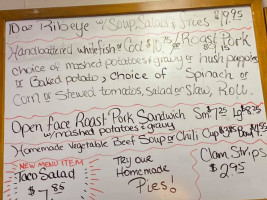 10oz Ribeye w/Soup, Salad & Fries $19.95
Handbattered whitefish or Cod $10.75/Roast Pork
choice of mashed potatoes + gravy or hush puppies
or Baked potato, choice of Spinach or
Corn or Stewed tomatoes, Salad or Slaw, Roll.
Open face Roast Pork Sandwich Sm $7.25 Lg $8.75
w/mashed potatoes + gravy
Homemade Vegetable Beef Soup or Chili Cup Bowl
NEW MENU ITEM
Taco Salad
$7.85
Try our
Homemade
Pies!
Clam Strips
$2.95